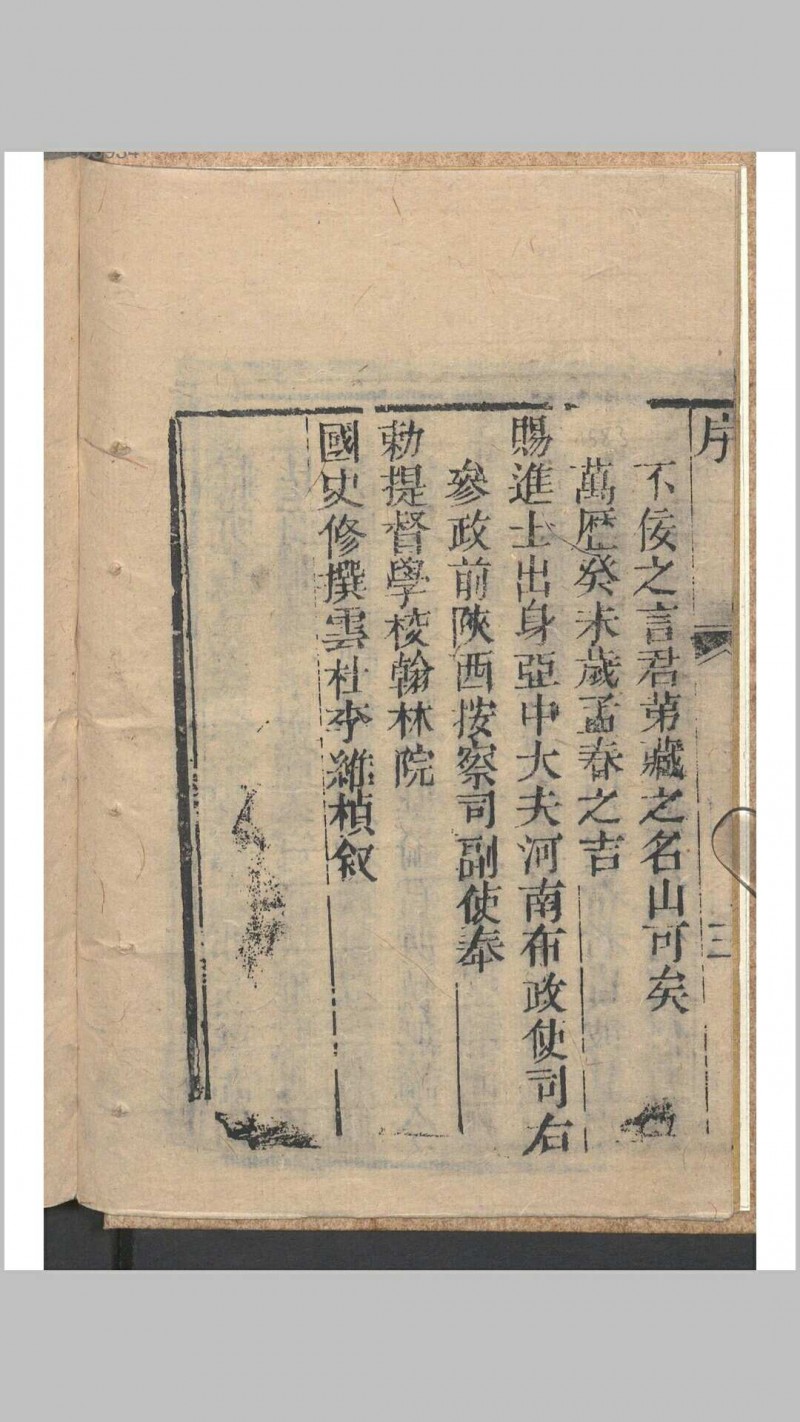 序
三
不佞之言君第藏之名山可矣
萬曆癸未歲孟春之吉
賜進士出身亞中大夫河南布政使司右
參政前陝西按察司副使奉
勑提督學校翰林院
國史修撰雲杜李維楨叙